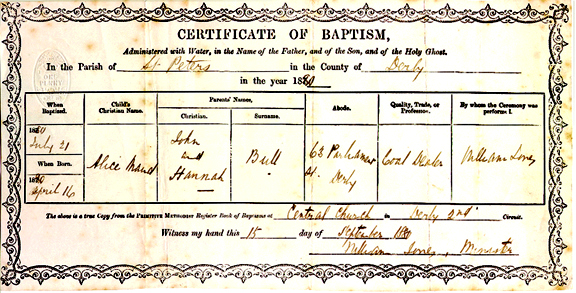 CERTIFICATE OF BAPTISM,
Administered with Water, in the Name of the Father, and of the Son, and of the Holy Ghost.
In the Parish of St Peters in the County of Derby
in the year 18
When Baptized. Child's Christian Name. Parents' Names, Abode. Quality, Trade, or Profession. By whom the Ceremony was performed.
Christian. Surname.
July 21 Alice Maud John and Hannah Bull 63 St. Derby Coal Dealer William Jones
When Born.
April 16
The above is a true Copy from the PRIMITIVE METHODIST Register Book of Baptisms at Central Church in Derby 2nd Circuit.
Witness my hand this 15 day of September
William Jones, Minister